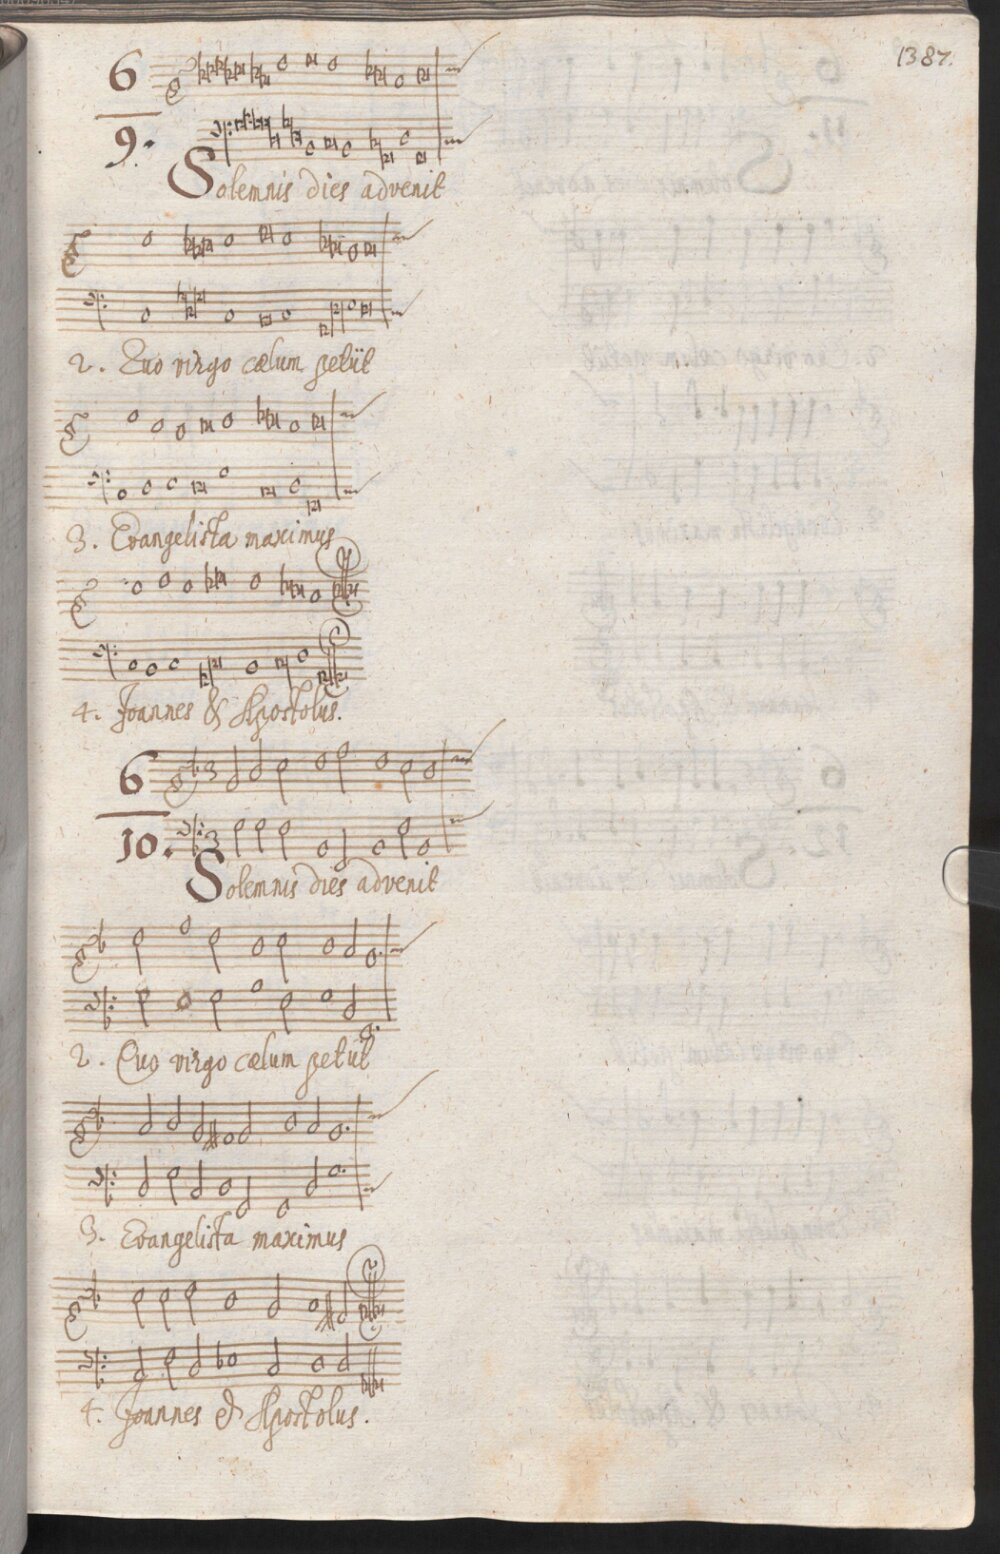 1387.
6
9.
Solemnis dies advenit
2. Quo virgo cœlum petiit
3. Evangelista maximus
4. Joannes & Apostolus.
6
10.
Solemnis dies advenit
2. Quo virgo cœlum petiit
3. Evangelista maximus
4. Joannes & Apostolus.